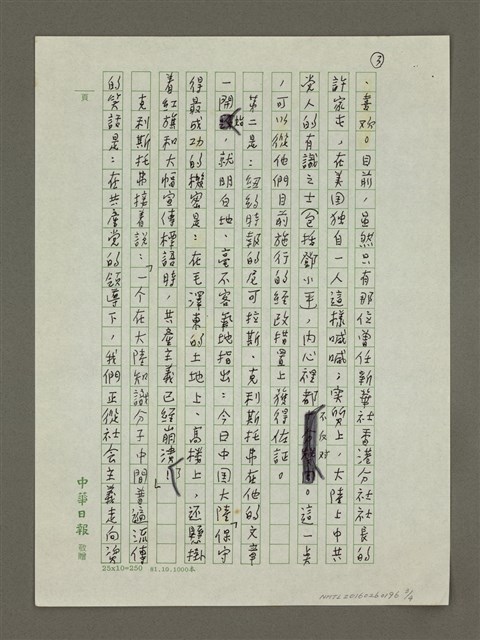 ③
、喜欢。目前，虽然只有那位曾任新華社香港分社社長的
許家屯，在美国独自一人這樣喊喊；实质上，大陸上中共
党人的有識之士（包括鄧小平，内心裡都不反对。這一点
，可以從他們目前施行的经改措置上獲得佐証。
第二是：纽約時報的尼可拉斯、克利斯托弗在他的文章
一開始，就明白地、毫不客氣地指出：今日中国大陸「保守
得最成功的機密是：在毛澤東的土地上、高楼上，还懸掛
着紅旗和大幅宣傳標語時，共產主義已经崩潰了」
克利斯托弗接着説：「一个在大陸知識分子中間普遍流傳
的笑話是：在共產党的領導下，我們正從社会主義走向资
頁
中華日報 敬贈
25x10=250 81.10.1000本
NMTL20160260196 3/4